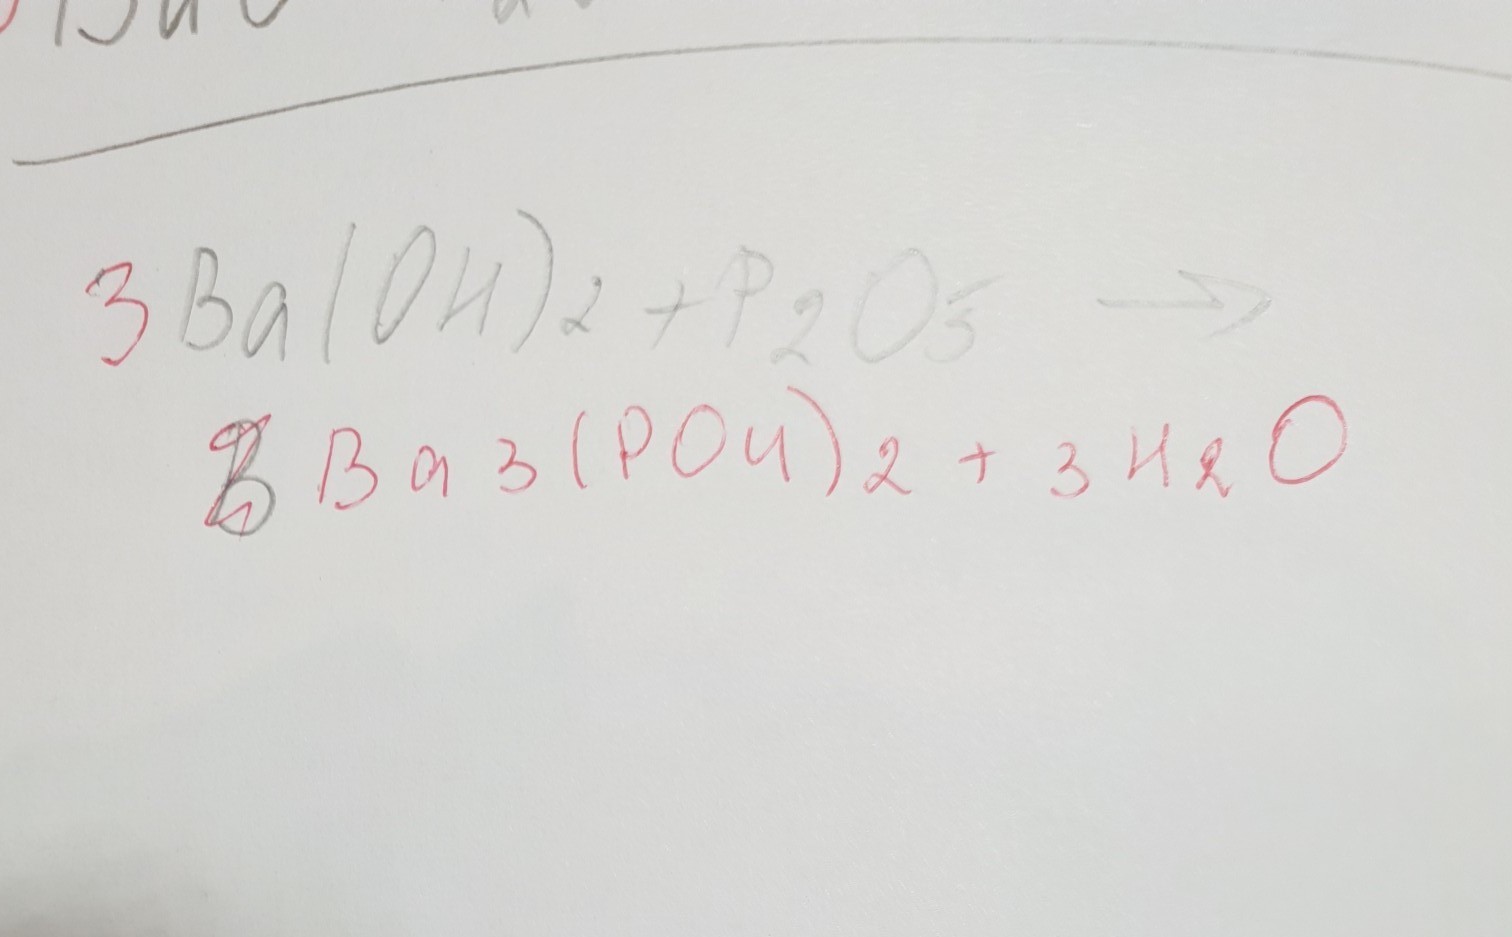 3Ba(OH)2+P2O5 →
Ba3(PO4)2 + 3H2O